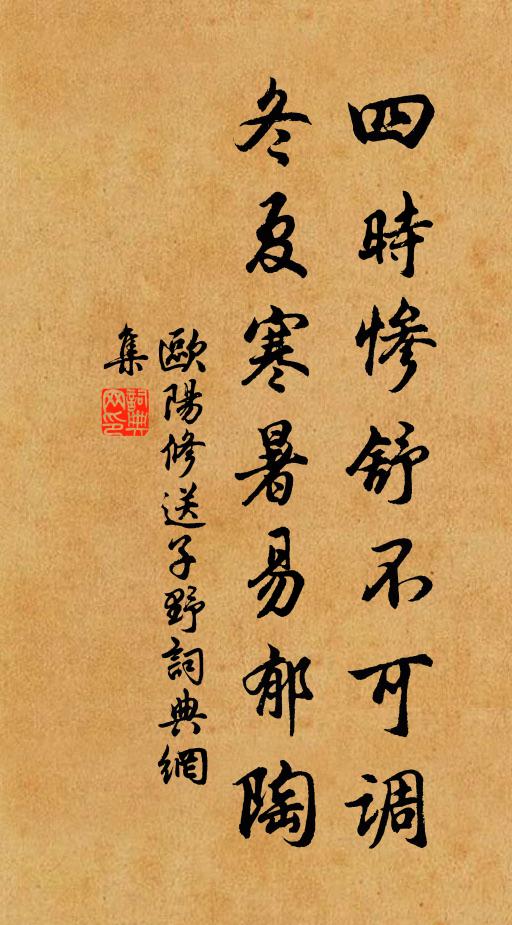 四時慘舒不可调
冬夏寒暑易郁陶
歐陽修送子野詞典網
集
詞典
网印